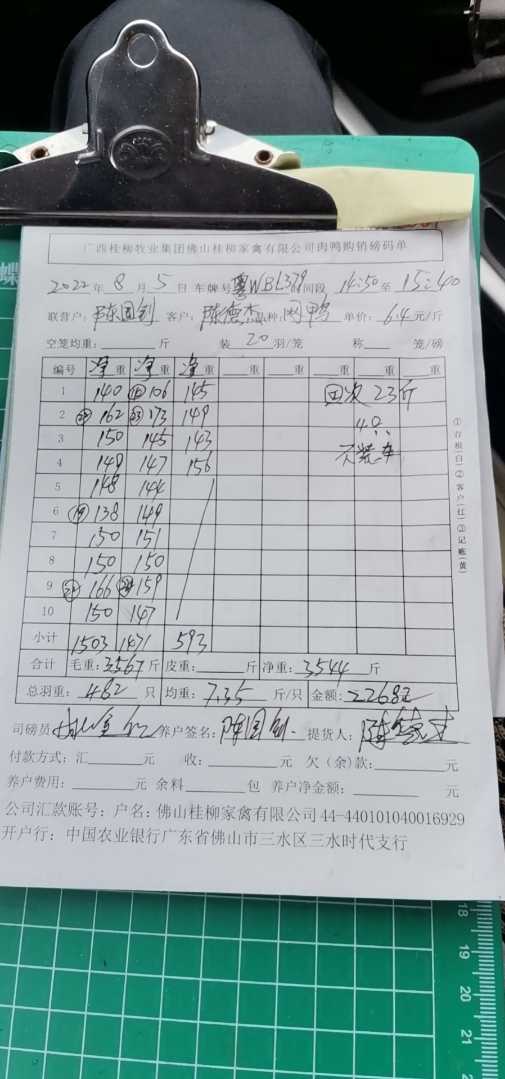 广西桂柳牧业集团佛山桂柳家禽有限公司肉鸭购销磅码单
2022年 8 月 5 日 车牌号 粤WBL379 间段 14:50 至 15:40
联营户: 陈国钊 客户: 陈德杰 品种: 肉鸭 单价: 6.4 元/斤
空笼均重: 斤 装 20 羽/笼 称 笼/磅
编号 净重 净重 净重 重 重 重 重 重
1 140 106 145 回次 23斤
2 162 173 149 4只
3 150 145 143 不装车
4 149 147 156
5 148 144
6 ⑲ 138 149
7 150 151
8 150 150
9 166 159
10 150 147
小计 1503 1471 593
合计 毛重: 3567 斤 皮重: 斤 净重: 3544 斤
总羽重: 482 只 均重: 7.35 斤/只 金额: 22682
司磅员 养户签名: 陈国钊 提货人: 陈德杰
付款方式: 汇 元 收: 元 欠(余)款: 元
养户费用: 元 余料 包 养户净金额: 元
公司汇款账号: 户名: 佛山桂柳家禽有限公司 44-440101040016929
开户行: 中国农业银行广东省佛山市三水区三水时代支行
①存根(白)②客户(红)③记账(黄)
蝶
18
19
20
21